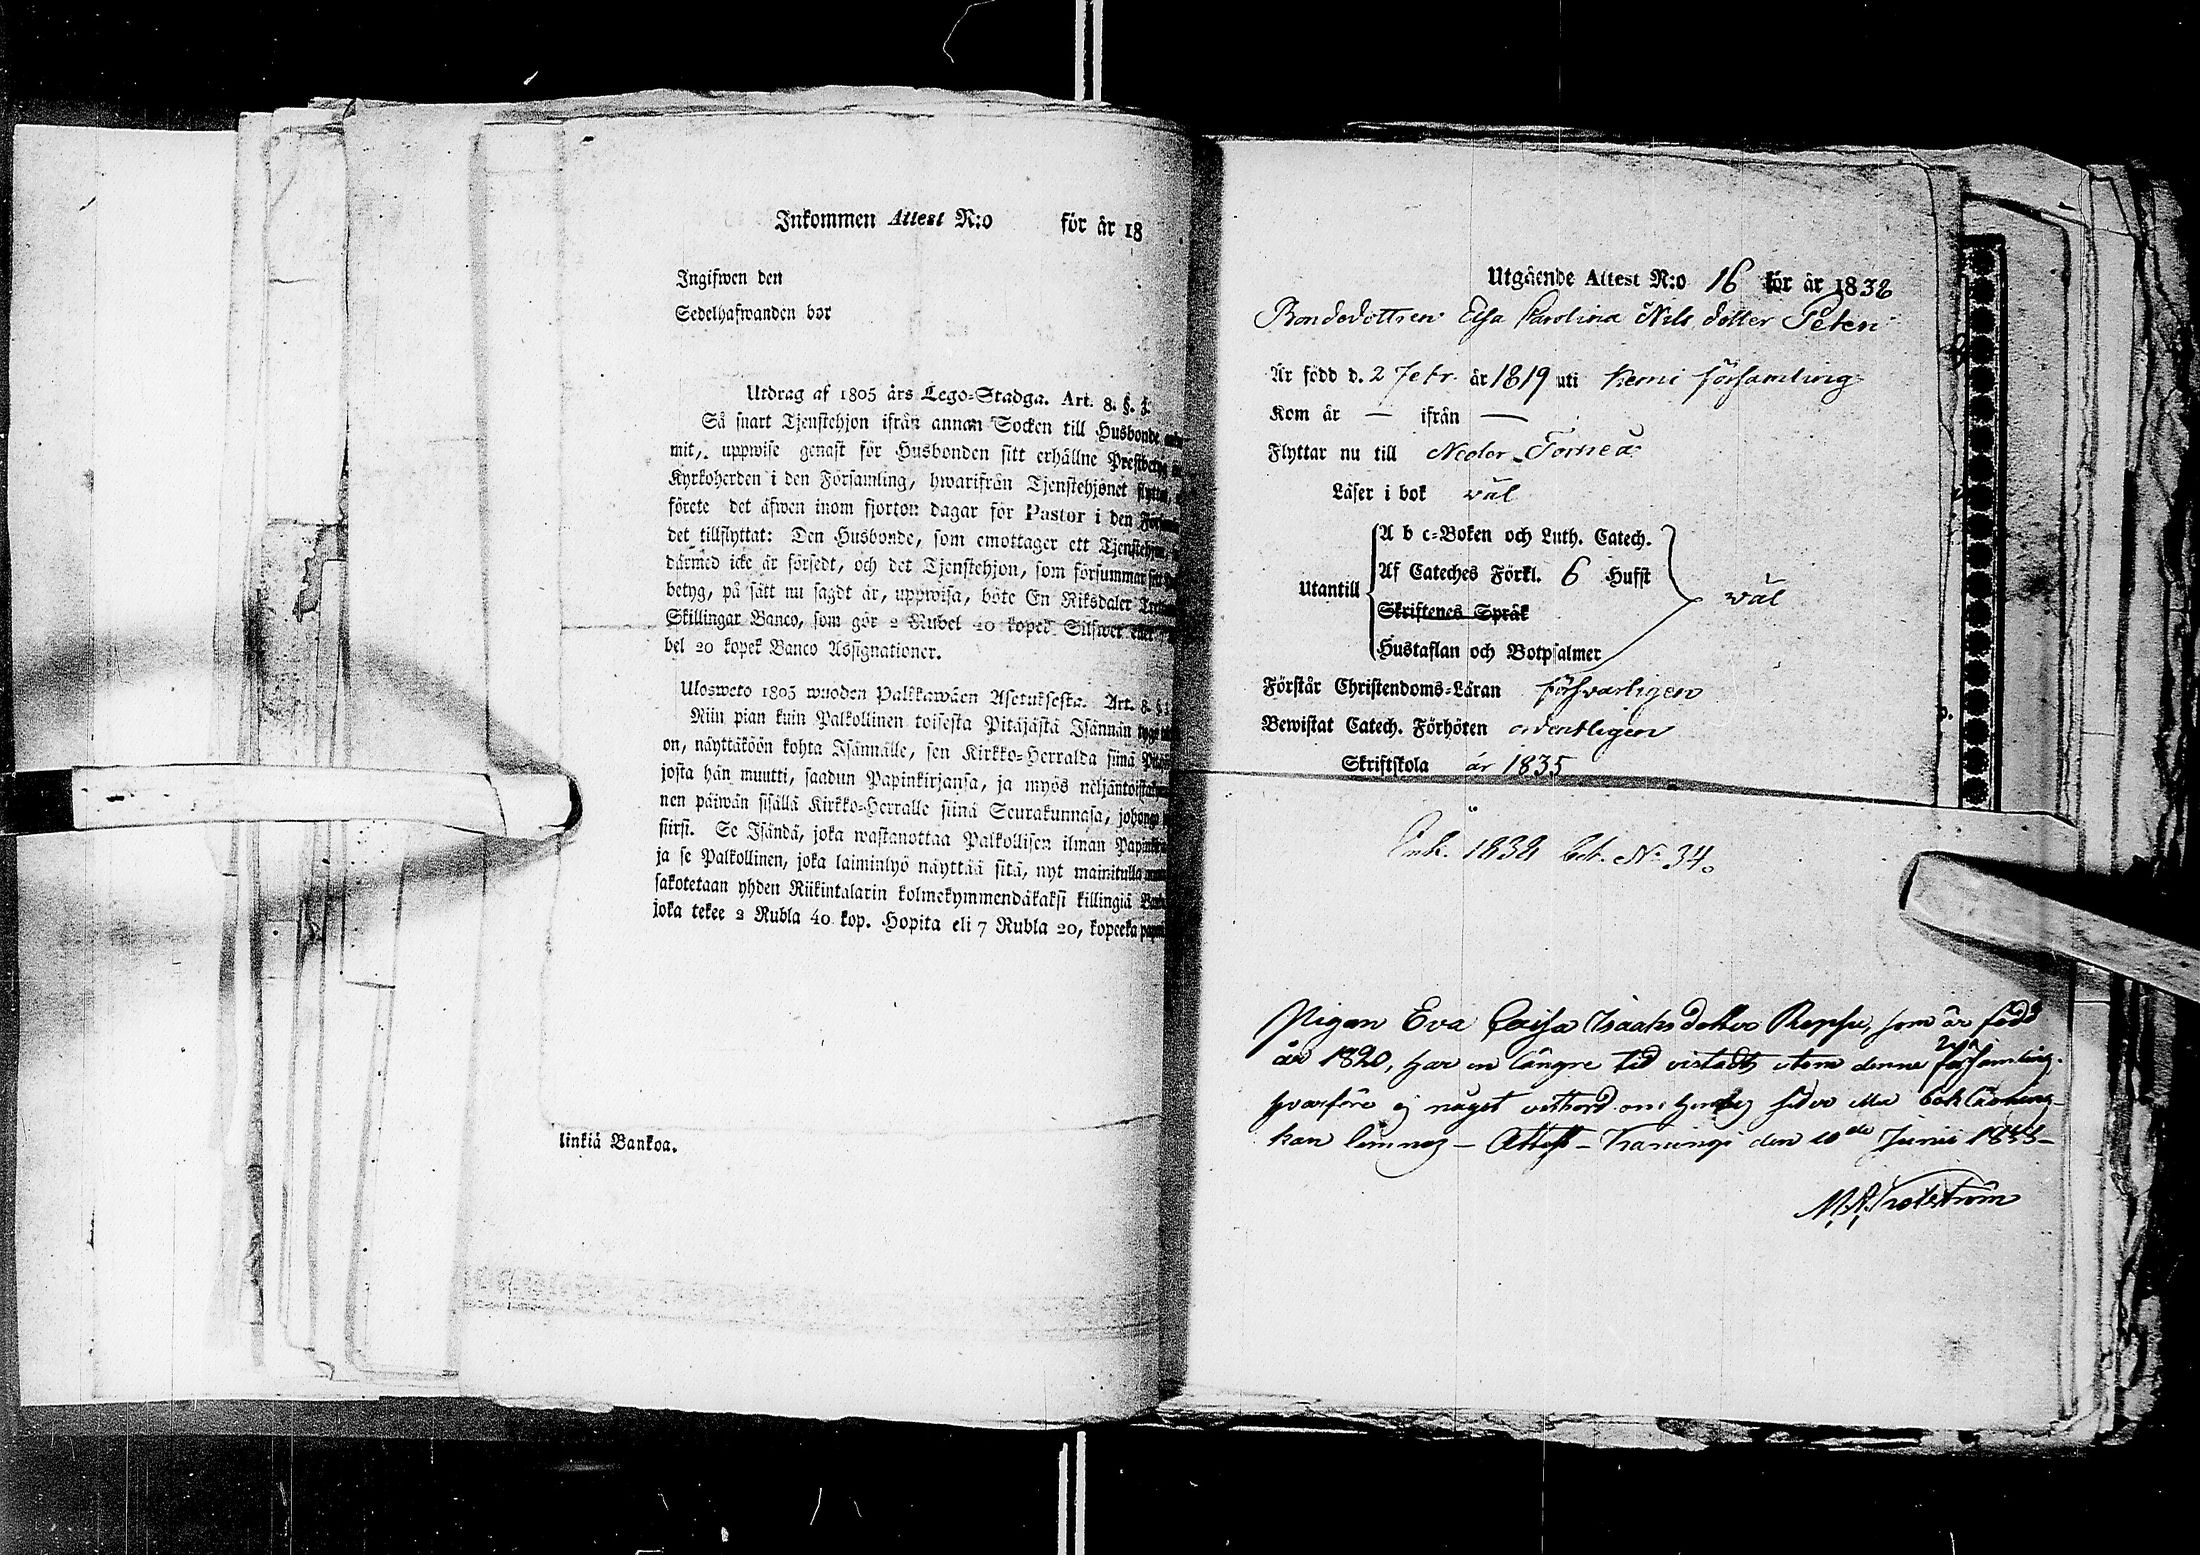 Inkommen Attest N:o för år 18
Ingifwen den
Sedelhafwanden bor
Utdrag af 1805 års Lego-Stadga. Art. 8. §.
Så snart Tjenstehjon ifrån annan Socken till Husbonde
mit, uppwise genast för Husbonden sitt erhållne
Kyrkoherden i den Församling, hwarifrån Tjenstehjonet
förete det äfwen inom fjorton dagar för Pastor i den
det tillflyttat: Den Husbonde, som emottager ett
därmed icke är försedt, och det Tjenstehjon, som försummar
betyg, på sätt nu sagdt är, uppwisa, böte En Riksdaler
Skillingar Banco, som gör 2 Rubel 40 kopek Silfwer
bel 20 kopek Banco Assignationer.
Ulosweto 1805 wuoden Palkkawäen Asetuksesta. Art. 8. §
Niin pian kuin Palkollinen toisesta Pitäjästä Isännän
on, näyttäköön kohta Isännälle, sen Kirkko-Herralda siinä
josta hän muutti, saadun Papinkirjansa, ja myös
nen päiwän sisällä Kirkko-Herralle siinä Seurakunnasa,
siirsi. Se Isändä, joka wastanottaa Palkollisen ilman
ja se Palkollinen, joka laiminlyö näyttää sitä, nyt mainitulla
sakotetaan yhden Riikintalarin kolmekymmendäkaksi killingiä
joka tekee 2 Rubla 40 kop. Hopita eli 7 Rubla 20, kopeeka
linkiä Bankoa.
Utgående Attest N:o 16 för år 1838
Bondedottren Elsa Carolina Nils dotter Peteri
Är född d. 2 Febr. år 1819 uti Kemi församling
Kom år — ifrån —
Flyttar nu till Neder-Torneå
Läser i bok väl
A b c-Boken och Luth. Catech.
Utantill Af Cateches Förkl. 6 Hufst väl
Skriftenes Språk
Hustaflan och Botpsalmer
Förstår Christendoms-Läran försvarligen
Bewistat Catech. Förhören ordentligen
Skriftskola år 1835
Ink. 1838 bet. No 34.
Pigan Eva Caisa Isaksdotter som är född
år 1820, har en längre tid vistadts utom denna församling
hvarföre ej något vittnord om hennes seder eller bokläsning
kan lemnas – Attest – Karungi den 10de Junii